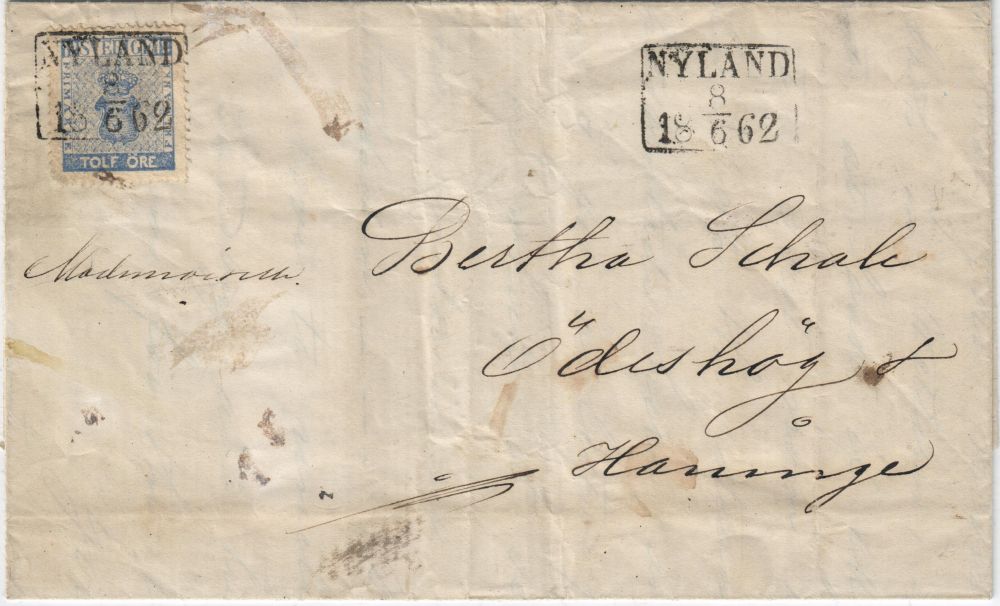 NYLAND
8
18 6 62
TOLF ÖRE
NYLAND
8
18 6 62
Mademoiselle
Bertha Schale
Ödeshög &
Haninge